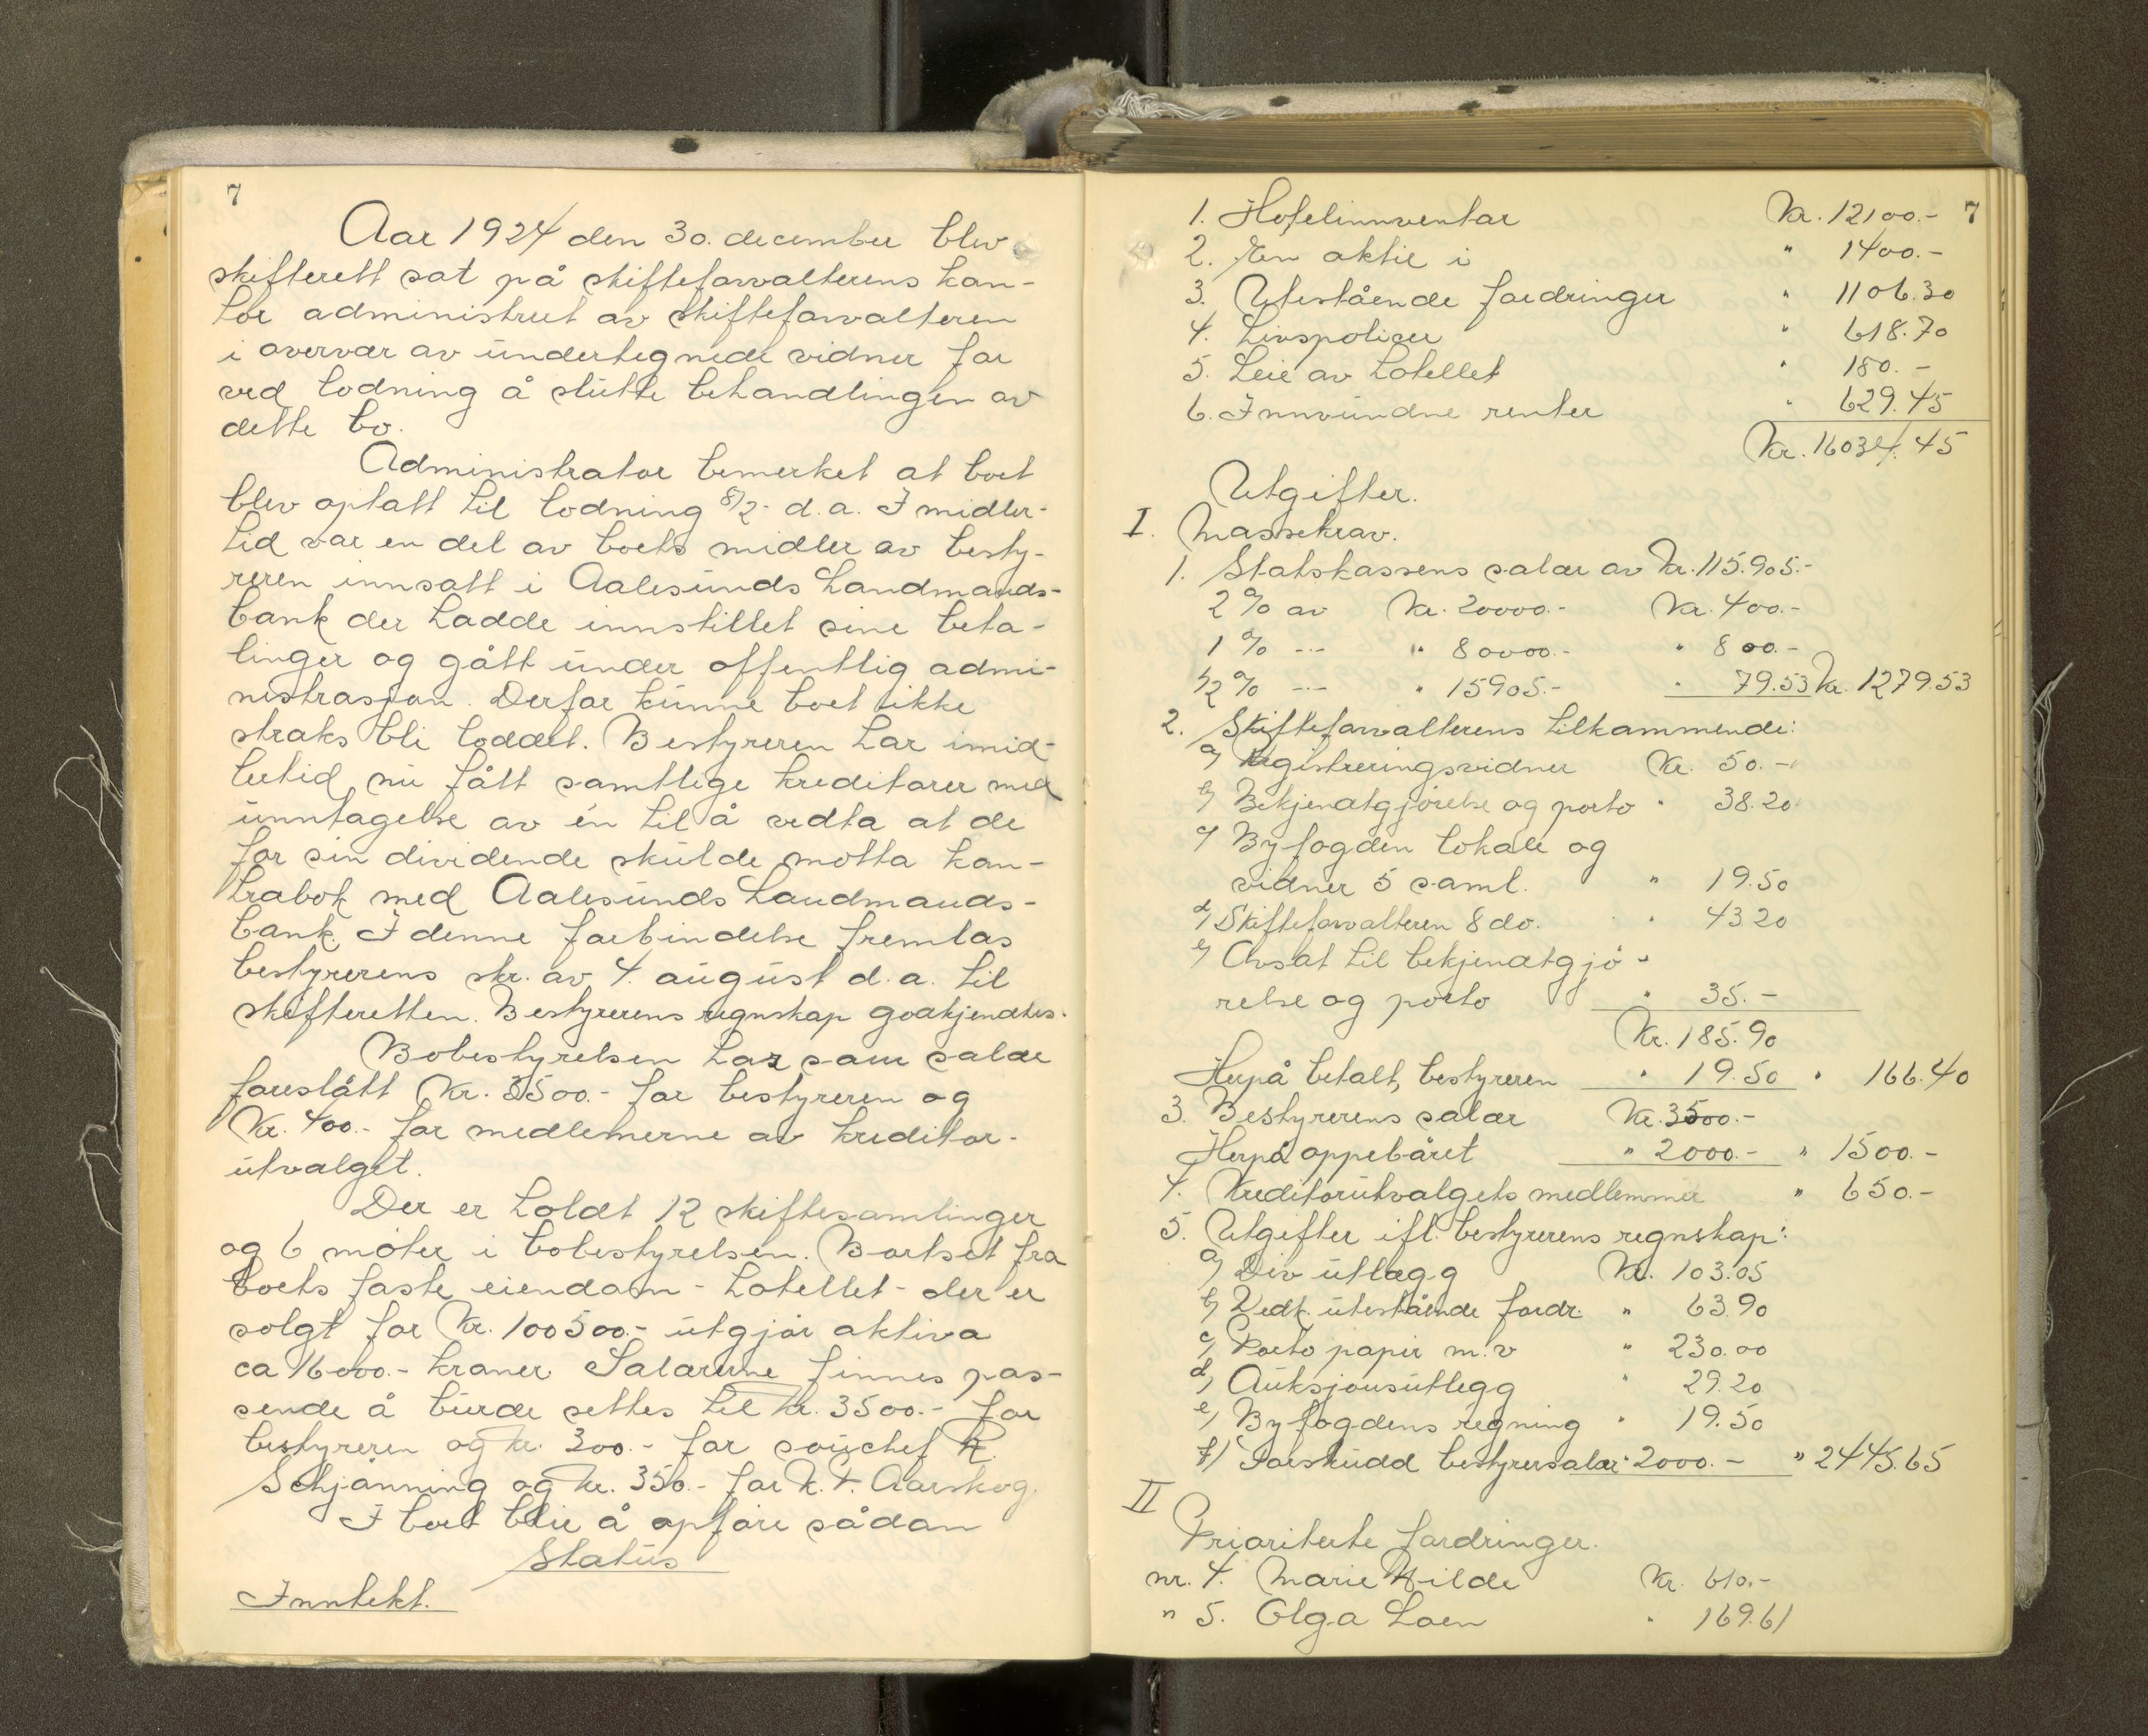 7
Aar 1924 den 30. december blev
skifterett sat på skifteforvalterens kon-
tor administrert av skifteforvalteren
i overvær av undertegnede vidner for
ved lodning å slutte behandlingen av
dette bo.
Administrator bemerket at boet
blev optatt til lodning 8/2- d.a. Imidler-
tid var en del av boets midler av besty-
reren innsatt i Aalesunds Landmands-
bank der hadde innstillet sine beta-
linger og gått under offentlig admi-
nistrasjon. Derfor kunne boet ikke
straks bli loddet. Bestyreren har imid-
lertid nu fått samtlige kreditorer med
unntagelse av én til å vedta at de
for sin dividende skulde motta kon-
trabok med Aalesunds Landmands-
bank. I denne forbindelse fremlas
bestyrerens skr. av 4. august d.a. til
skifteretten. Bestyrerens regnskap godkjendtes.
Bobestyrelsen har som salær
foreslått Kr. 3500.- for bestyreren og
Kr. 400.- for medlemerne av kreditor-
utvalget.
Der er holdt 12 skiftesamlinger
og 6 møter i bobestyrelsen. Bortset fra
boets faste eiendom - hotellet - der er
solgt for Kr. 100500.- utgjør aktiva
ca 16000.- kroner. Salærerne finnes pas-
sende å burde settes til kr. 3500.- for
bestyreren og kr. 300.- for souchef
Schjønning og kr. 350.- for K. F. Aarskog.
I boet blir å opføre sådan
Status
Inntekt.
1. Hotelinnventar Kr. 12100.- 7
2. En aktie i " 1400.-
3. Utestående fordringer " 1106.30
4. Livspolicer " 618.70
5. Leie av hotellet " 180.-
6. Innvundne renter " 629.45
Kr. 16034.45
Utgifter.
I. Massekrav.
1. Statskassens salær av Kr. 115.905.-
2 % av Kr. 20000.- Kr. 400.-
1 % --- " 80000.- " 800.-
1/2 % --- " 15905.- " 79.53 Kr. 1279.53
2. Skifteforvalterens tilkommende:
a) Registreringsvidner Kr. 50.-
b) Bekjendtgjørelse og porto " 38.20
c) Byfogden lokale og
vidner 5 saml. " 19.50
d) Skifteforvalteren 8 do. " 43.20
e) Avsat til bekjendtgjø-
relse og porto " 35.-
Kr. 185.90
Herpå betalt, bestyreren " 19.50 " 166.40
3. Bestyrerens salær Kr. 3500.-
Herpå oppebåret " 2000.- " 1500.-
4. Kreditorutvalgets medlemmer " 650.-
5. Utgifter ifl. bestyrerens regnskap:
a) Div utlegg Kr. 103.05
b) Vedk. utestående fordr. " 63.90
c) Porto papir m.v " 230.00
d) Auksjonsutlegg " 29.20
e) Byfogdens regning " 19.50
f) Forskudd bestyrersalær " 2000.- " 2445.65
II
Prioriterte fordringer.
nr. 4. Marie Hilde Kr. 610.-
" 5. Olga Loen " 169.61